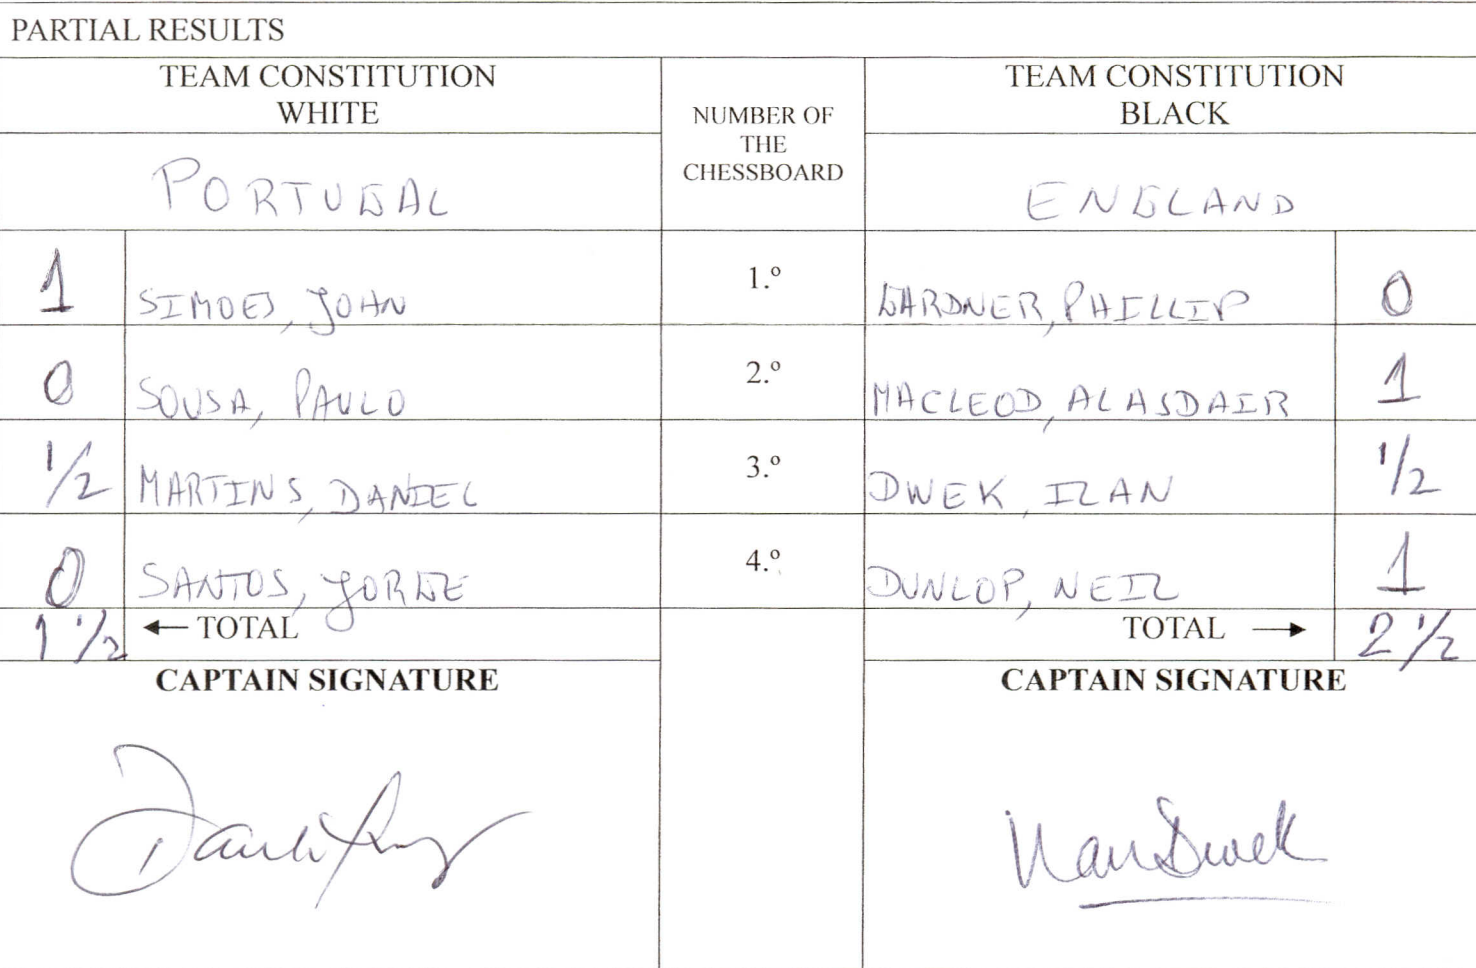 PARTIAL RESULTS
TEAM CONSTITUTION
WHITE
NUMBER OF
THE
CHESSBOARD
TEAM CONSTITUTION
BLACK
PORTUGAL
ENGLAND
1 SIMOES, JOHN 1.º GARDNER, PHILLIP 0
0 SOUSA, PAULO 2.º MACLEOD, ALASDAIR 1
1/2 MARTINS, DANIEL 3.º DWEK, ILAN 1/2
0 SANTOS, JORGE 4.º DUNLOP, NEIL 1
1 1/2 ← TOTAL TOTAL → 2 1/2
CAPTAIN SIGNATURE CAPTAIN SIGNATURE
Ilan Dwek